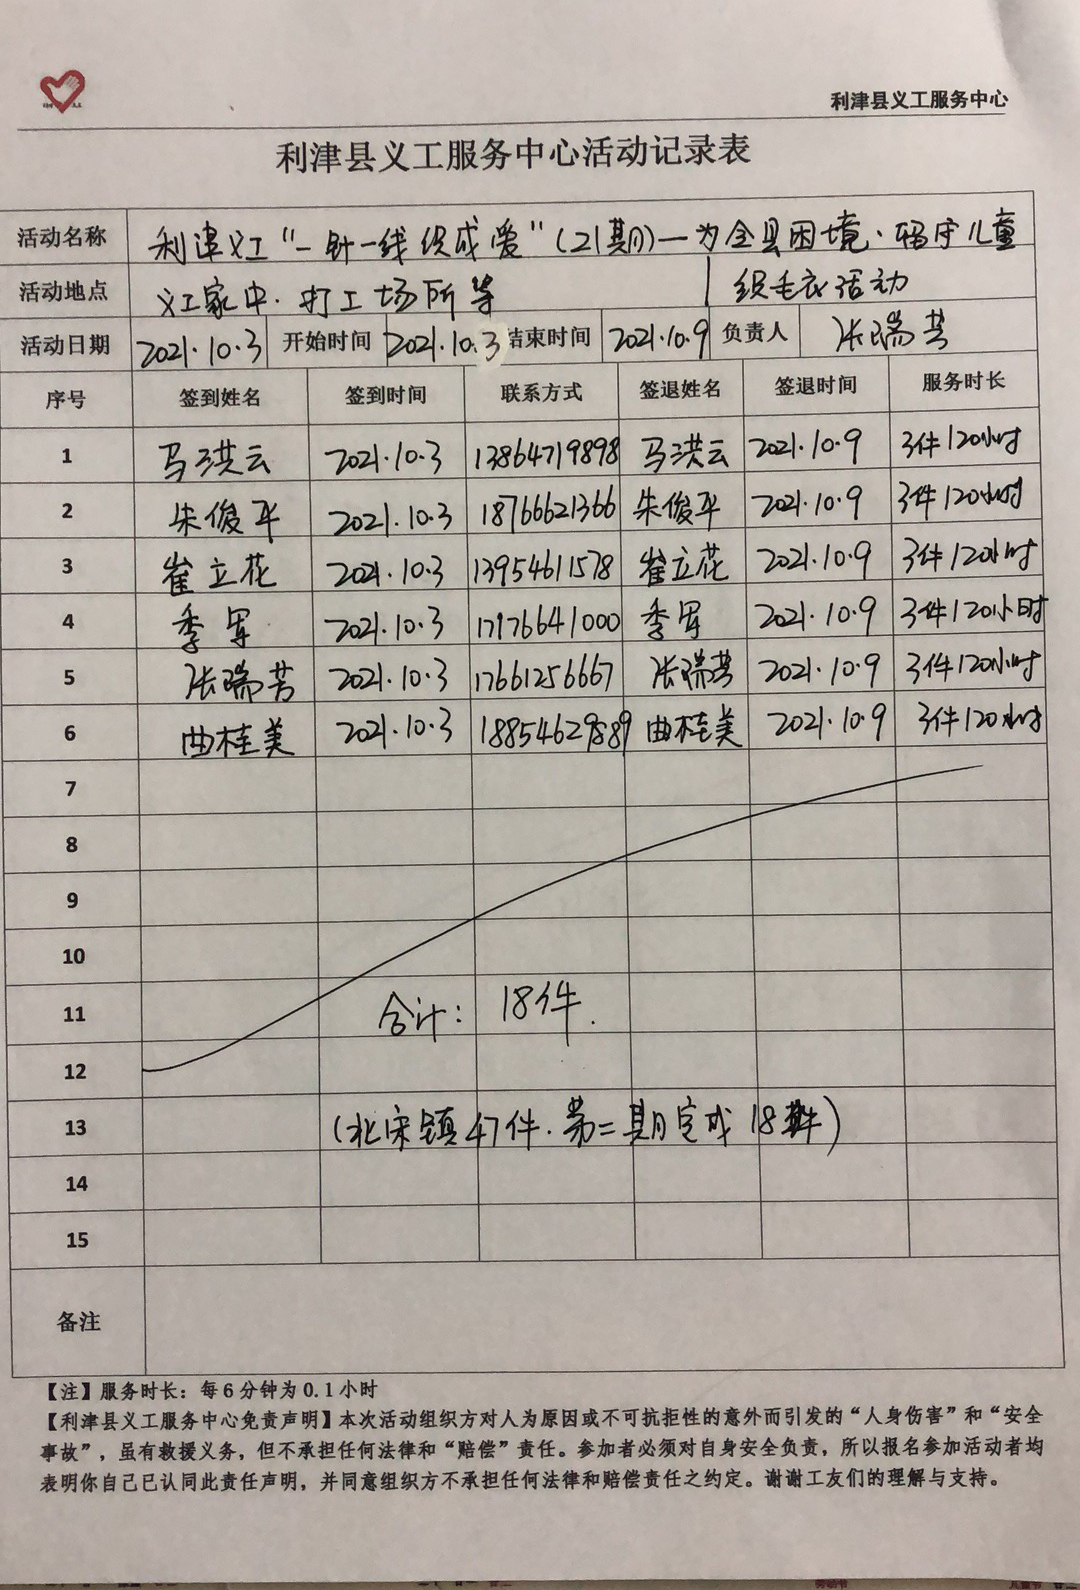 利津县义工服务中心
利津县义工服务中心活动记录表
活动名称 利津义工“一针一线织成爱”(21期)—为全县困境·留守儿童
活动地点 义工家中·打工场所等 织毛衣活动
活动日期 2021.10.3 开始时间 2021.10.3 结束时间 2021.10.9 负责人 张瑞芳
序号 签到姓名 签到时间 联系方式 签退姓名 签退时间 服务时长
1 马洪云 2021.10.3 13864719898 马洪云 2021.10.9 3件120小时
2 朱俊平 2021.10.3 18766621366 朱俊平 2021.10.9 3件120小时
3 崔立花 2021.10.3 13954611578 崔立花 2021.10.9 3件120小时
4 季军 2021.10.3 17176641000 季军 2021.10.9 3件120小时
5 张瑞芳 2021.10.3 17661256667 张瑞芳 2021.10.9 3件120小时
6 曲桂美 2021.10.3 曲桂美 2021.10.9 3件120小时
7
8
9
10
11 合计: 18件.
12
13 (北宋镇47件.第二期完成18件)
14
15
备注
【注】服务时长：每6分钟为0.1小时
【利津县义工服务中心免责声明】本次活动组织方对人为原因或不可抗拒性的意外而引发的“人身伤害”和“安全
事故”，虽有救援义务，但不承担任何法律和“赔偿”责任。参加者必须对自身安全负责，所以报名参加活动者均
表明你自己已认同此责任声明，并同意组织方不承担任何法律和赔偿责任之约定。谢谢工友们的理解与支持。